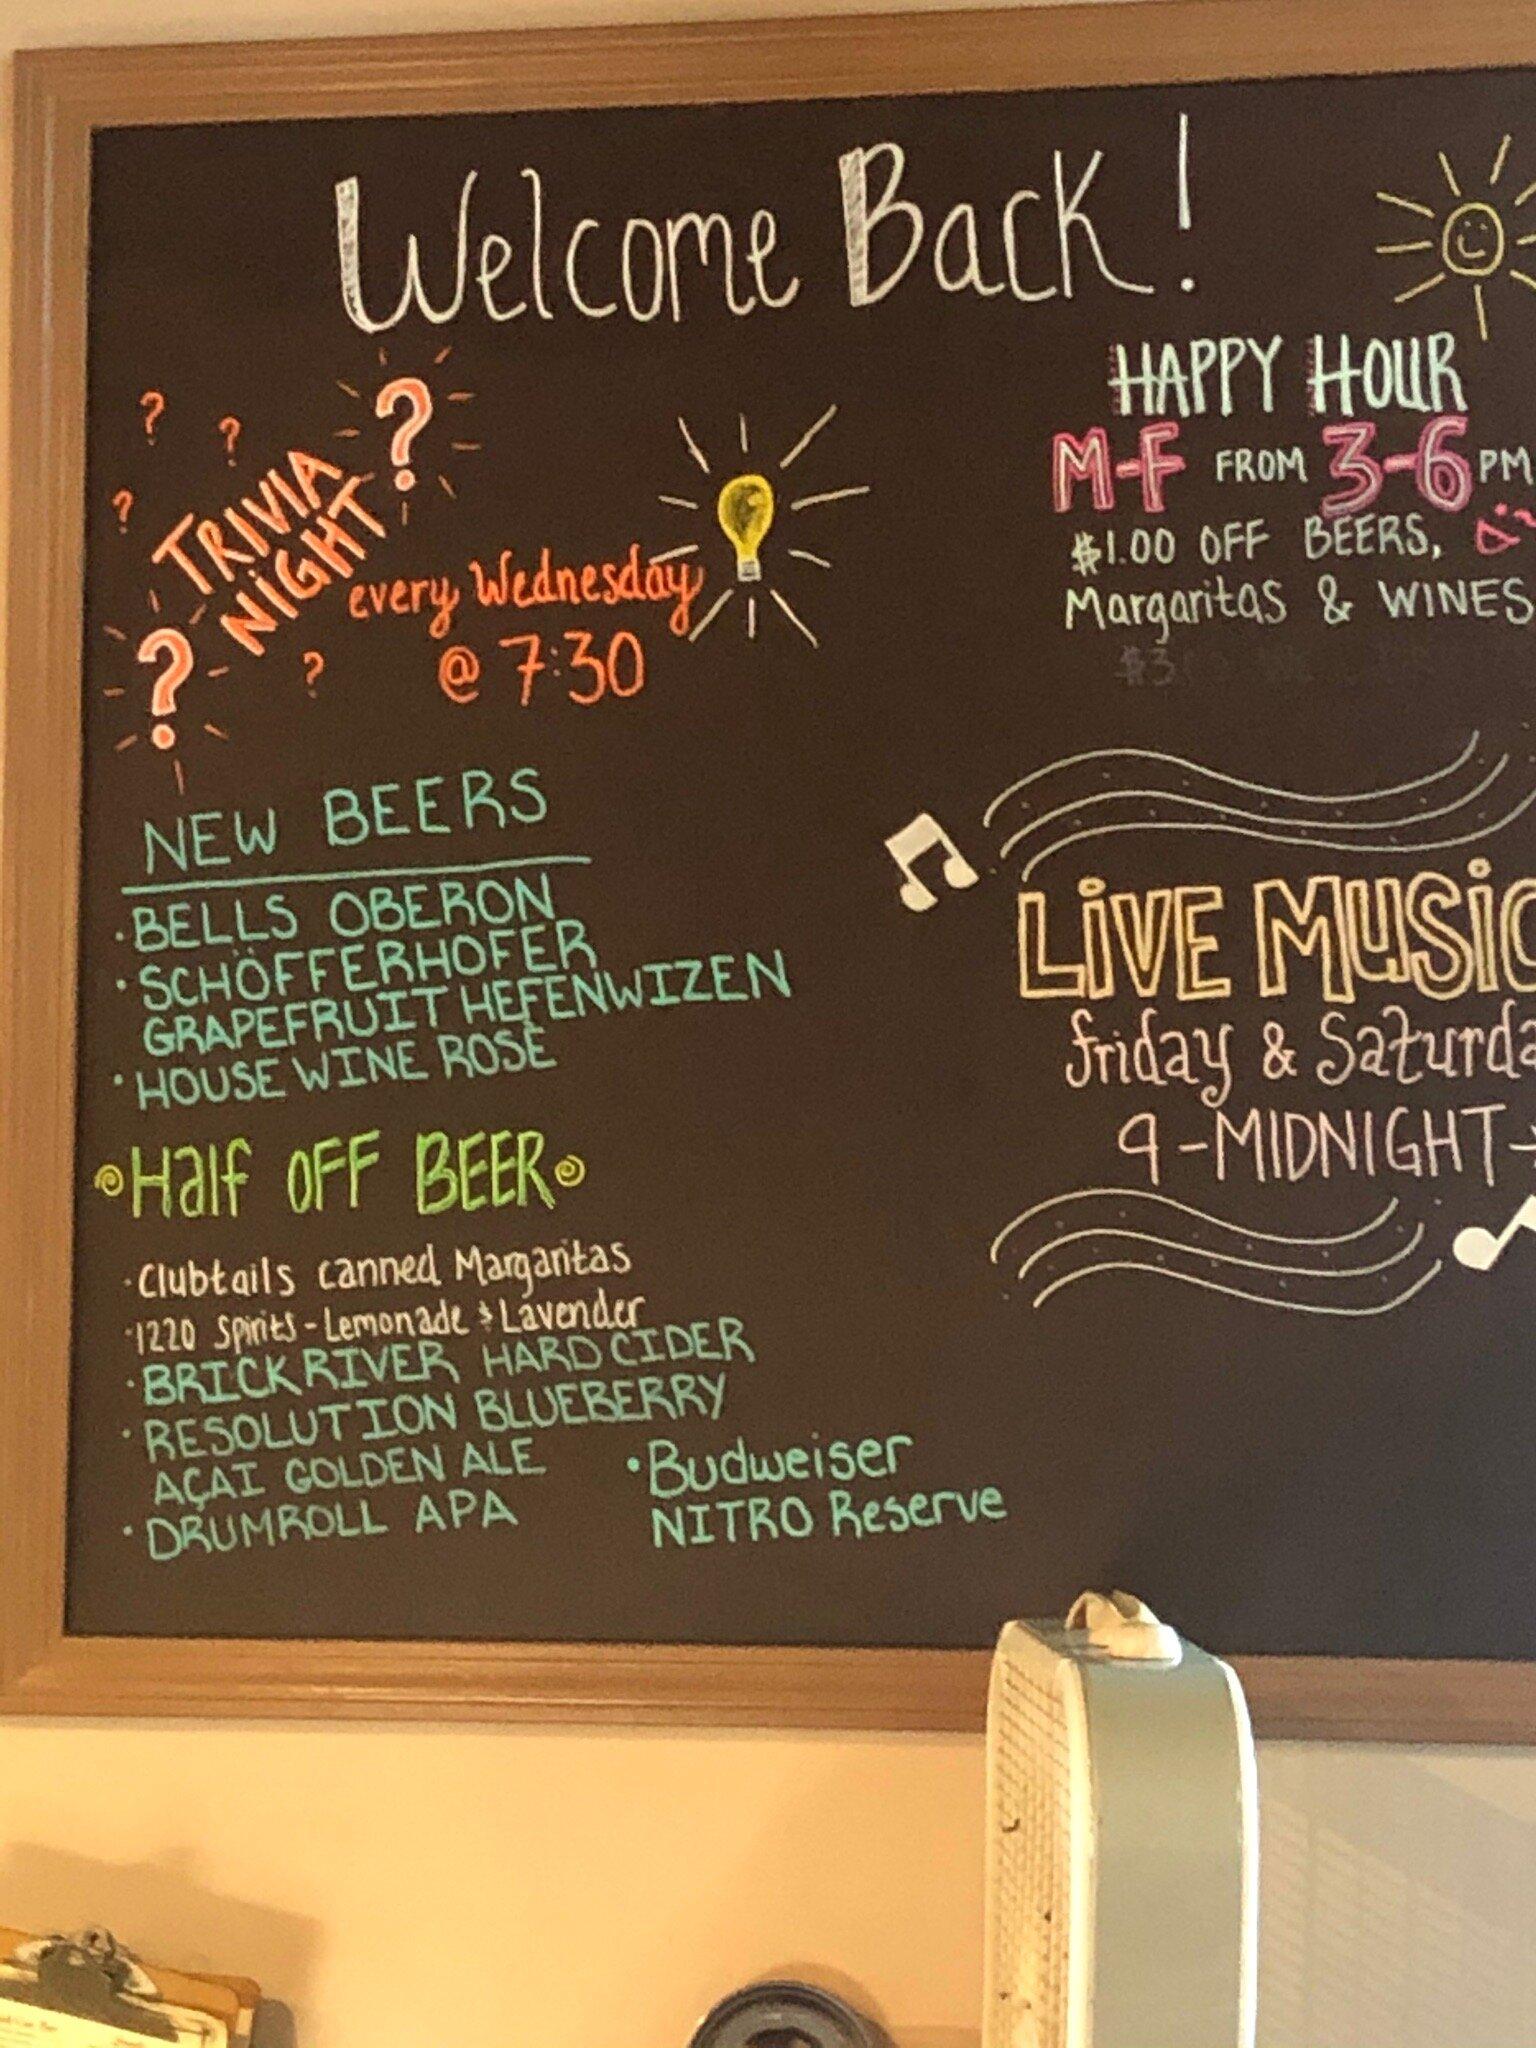 Welcome Back!
?
?
?
?
TRIVIA
NIGHT
every Wednesday
@ 7:30
?
?
NEW BEERS
· BELLS OBERON
· SCHÖFFERHOFER
GRAPEFRUIT HEFENWIZEN
· HOUSE WINE ROSÈ
Half OFF BEER
· Clubtails canned Margaritas
· 1220 Spirits - Lemonade & Lavender
· BRICK RIVER HARD CIDER
· RESOLUTION BLUEBERRY
AÇAI GOLDEN ALE
· DRUMROLL APA
· Budweiser
NITRO Reserve
HAPPY HOUR
M-F FROM 3-6 PM
$1.00 OFF BEERS,
Margaritas & WINES
$3
LIVE MUSIC
friday & Saturda
9 - MIDNIGHT -